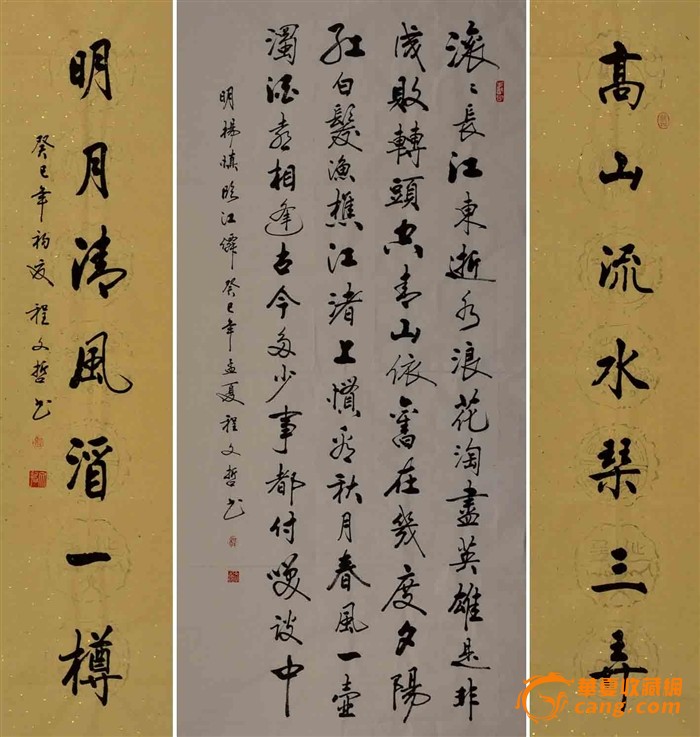 高山流水琹三弄
滾〻長江東逝水浪花淘盡英雄是非
成敗轉頭空青山依舊在幾度夕陽
紅白髮漁樵江渚上慣看秋月春風一壺
濁酒喜相逢古今多少事都付咲談中
明楊慎臨江僊癸巳年孟夏程文哲书
明月清風酒一樽
癸巳年初夏程文哲书
華夏收藏網
cang.com